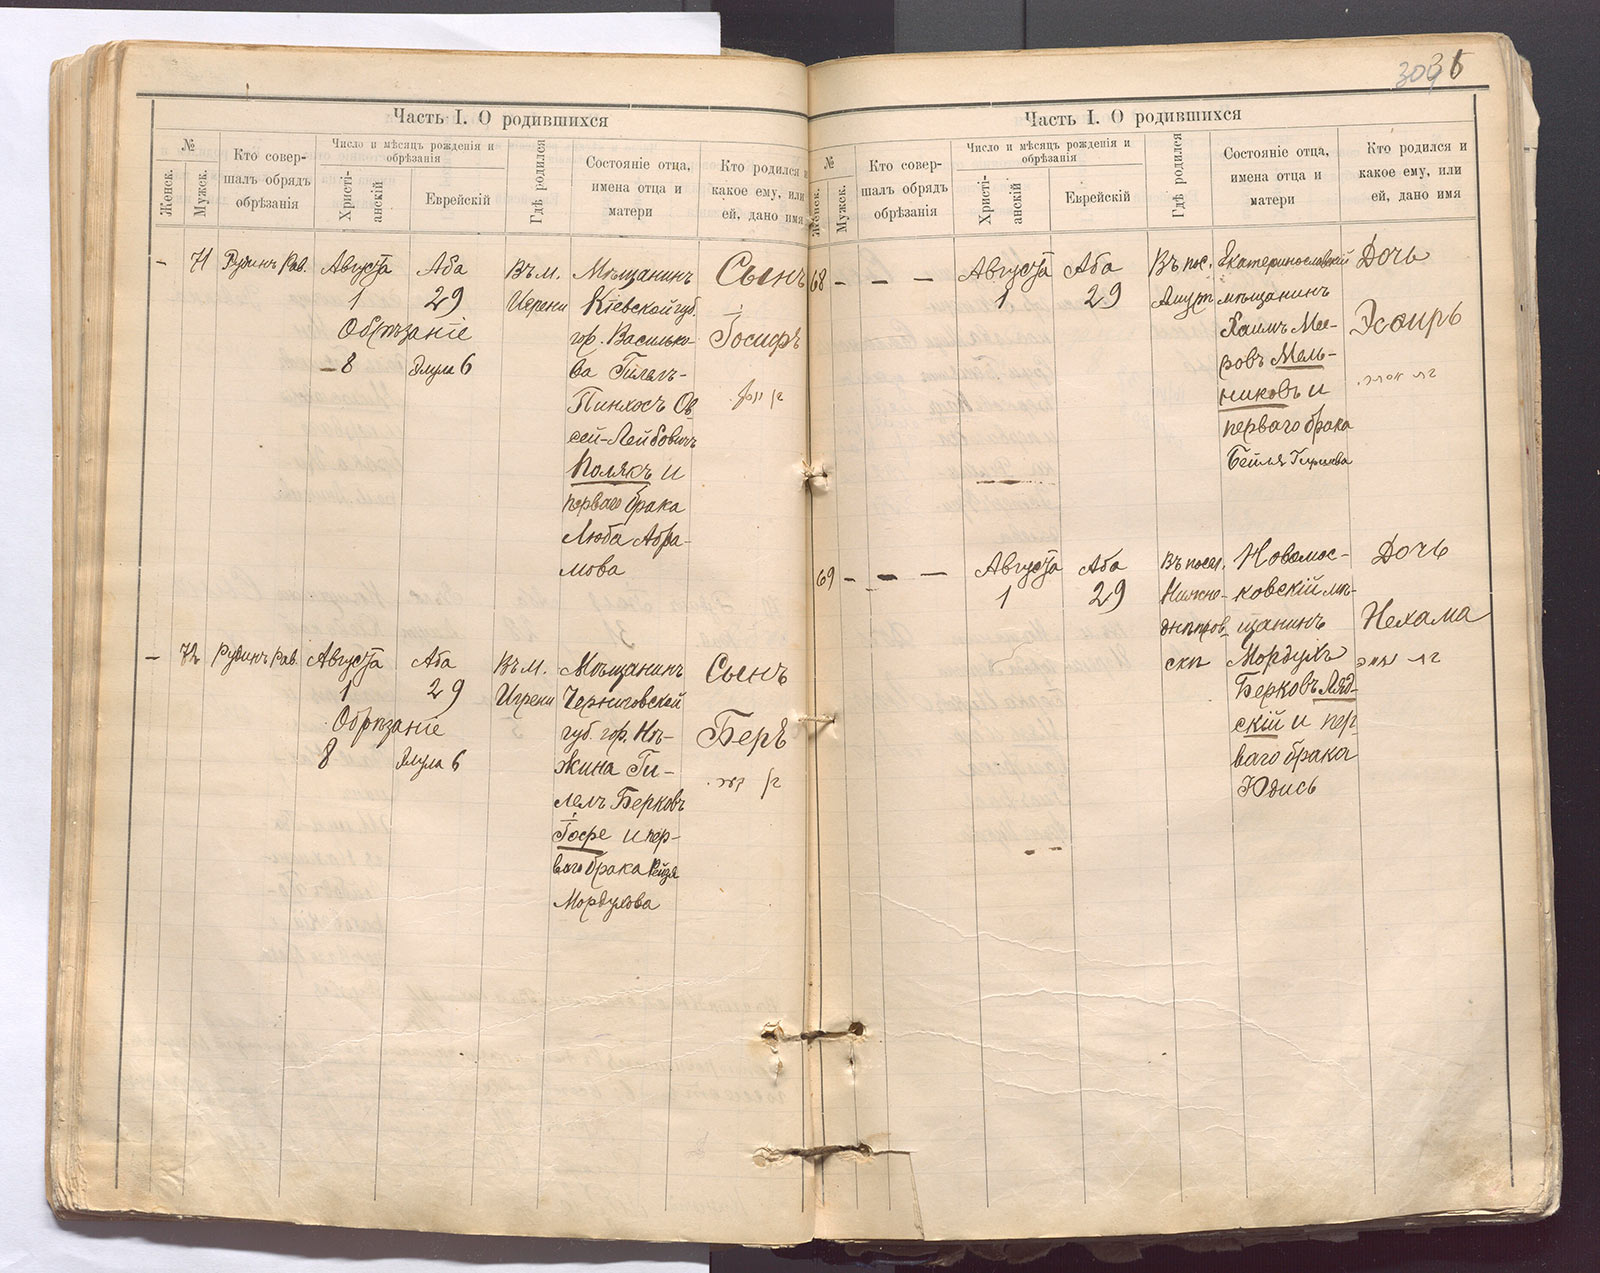 Часть I. О родившихся
№
Женск.
Мужск.
Кто совер-
шалъ обрядъ
обрѣзанія
Число и мѣсяцъ рожденія и
обрѣзанія
Христі-
анскій
Еврейскій
Гдѣ родился
Состояніе отца,
имена отца и
матери
Кто родился и
какое ему, или
ей, дано имя
– 71 Рубинъ Рав.
Августа
1
Обрѣзаніе
8
Аба
29
Элула 6
Въ м.
Игрени
Мѣщанинъ
Кіевской губ.
гор. Василько-
ва Гилель-
Пинхосъ Ов
сей-Лейбовичъ
Полякъ и
перваго брака
Люба Абра-
мова
Сынъ
Іосифъ
– 72 Рубинъ Рав.
Августа
1
Обрѣзаніе
8
Аба
29
Элула 6
Въ м.
Игрени
Мѣщанинъ
Черниговской
губ. гор. Нѣ-
жина Ги-
лелъ Берковъ
Іофе и пер-
ваго брака Рейзя
Мордухова
Сынъ
Беръ
Часть I. О родившихся
№
Женск.
Мужск.
Кто совер-
шалъ обрядъ
обрѣзанія
Число и мѣсяцъ рожденія и
обрѣзанія
Христі-
анскій
Еврейскій
Гдѣ родился
Состояніе отца,
имена отца и
матери
Кто родился и
какое ему, или
ей, дано имя
68 – – –
Августа
1
Аба
29
Въ пос.
Амур
Екатеринославскій
мѣщанинъ
Хаимъ Ме-
ровъ Мель-
никовъ и
перваго брака
Бейля
Дочь
Эсѳирь
69 – – –
Августа
1
Аба
29
Въ посел.
Нижне-
днѣпров
скѣ
Новомос-
ковскій мѣ-
щанинъ
Мордухъ
Берковъ Ляд-
скій и пер-
ваго брака
Юдись
Дочь
Нехама